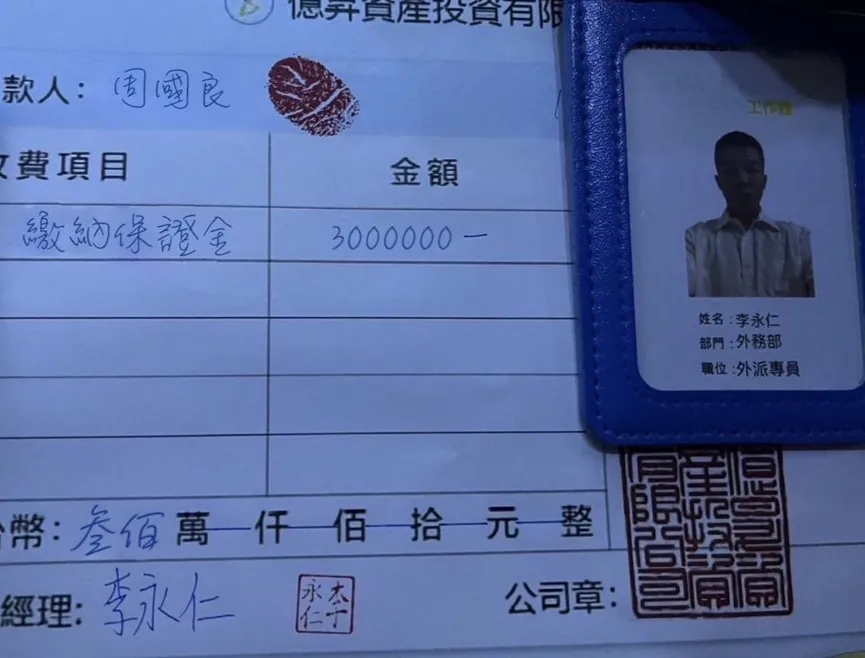 億昇資產投資有限
款人：周國良
工作證
收費項目 金額
繳納保證金 3000000－
姓名：李永仁
部門：外務部
職位：外派專員
台幣：叁佰萬仟佰拾元整
經理：李永仁 李永仁 公司章：